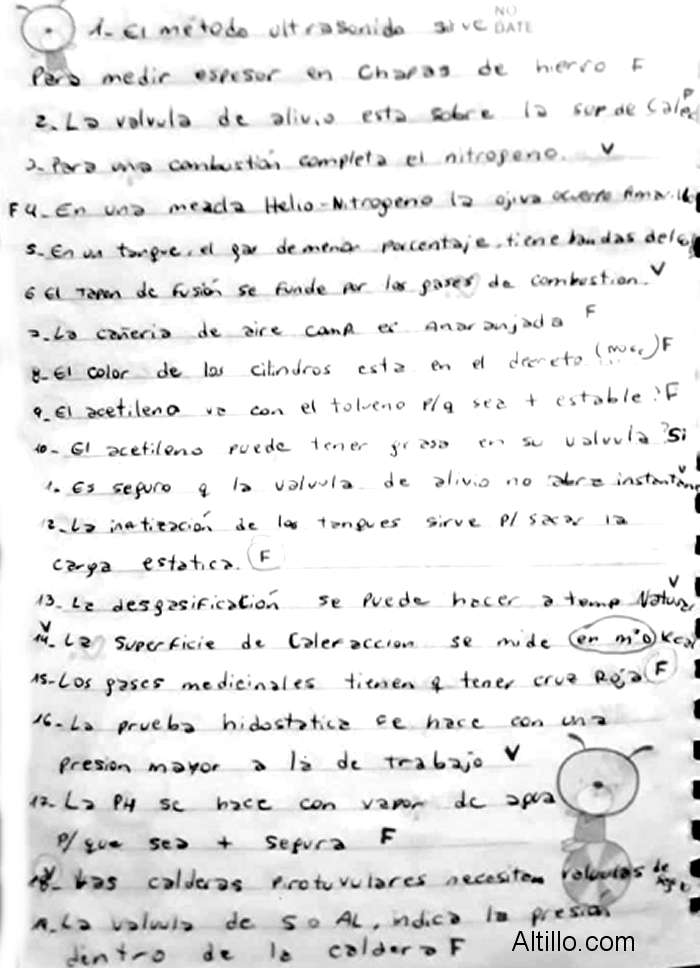 NO
DATE
1- El método ultrasonido sirve
Para medir espesor en Chapas de hierro F
2. La valvula de alivio esta sobre la sup de Calef
3. Para una combustión completa el nitrogeno. V
F 4- En una mezcla Helio-Nitrogeno la ojiva cuerpo Amarill
5- En un tanque, el gas de menor porcentaje, tiene bandas del
6 El Tapon de fusión se funde por los gases de combustion. V
7. La cañeria de aire comp es Anaranjada F
8- El color de los cilindros esta en el decreto F
9. El acetileno va con el tolueno p/q sea + estable? F
10- El acetileno puede tener grasa en su valvula? Si
1. Es seguro q la valvula de alivio no abra instantáne
12. La inetización de los tanques sirve p/ sacar la
carga estatica. F
13- La desgasificación se puede hacer a temp Natural V
14. V La Superficie de Calefaccion se mide en m² o Kcal
15- Los gases medicinales tienen q tener cruz Roja F
16- La prueba hidostatica se hace con una
presion mayor a la de trabajo V
17. La PH se hace con vapor de agua
p/ que sea + segura F
18- Las calderas Pirotuvulares necesitan valvulas de
1. La valvula de S o AL, indica la presion
dentro de la caldera F
Altillo.com